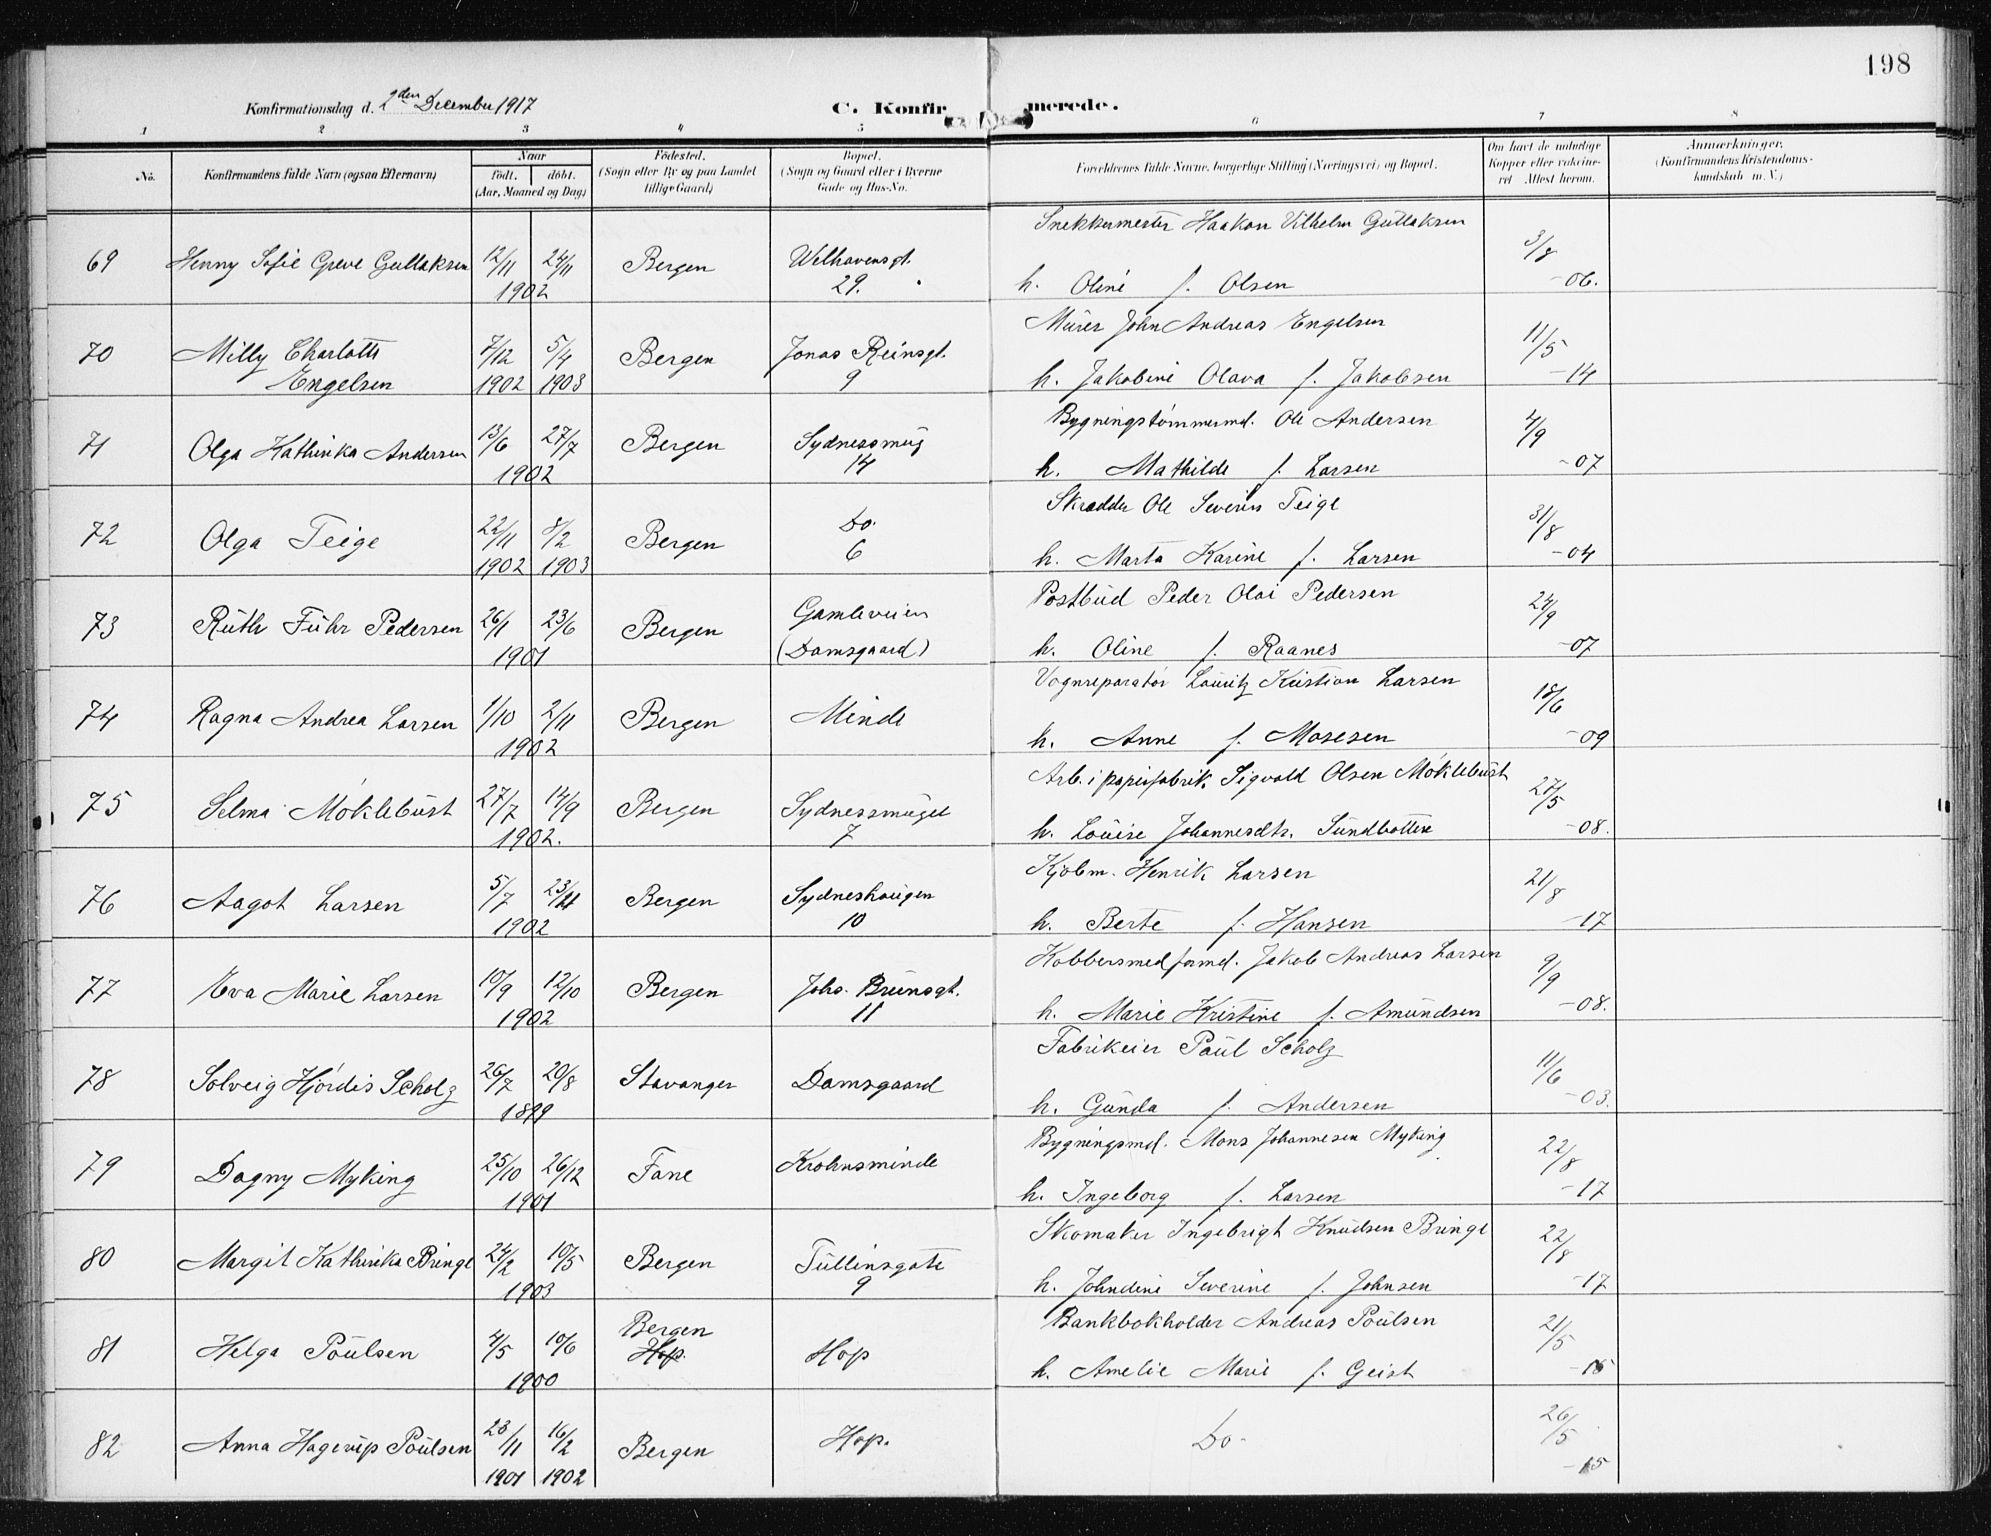 198
Konfirmationsdag d. 2den December 1917
C. Konfirmerede.
1 2 3 4 5 6 7 8
No.
Konfirmandens fulde Navn (ogsaa Efternavn)
Naar
født. døbt.
(Aar, Maaned og Dag)
Fødested.
(Sogn eller By og paa Landet
tillige Gaard)
Bopæl.
(Sogn og Gaard eller i Byerne
Gade og Hus-No.
Forældrenes fulde Navne, borgerlige Stilling (Næringsvei) og Bopæl.
Om havt de naturlige
Kopper eller vaccine-
ret Attest herom.
Anmærkninger.
(Konfirmandens Kristendoms-
kundskab m. V.)
Snekkermester Haakon Vilhelm Gullaksen
69 Henny Sofie Greve Gullaksen 12/11 24/11 Bergen Welhavensgt. 3/8
1902 29. h. Oline f. Olsen -06.
Murer John Andreas Engelsen
70 Milly Charlotte 7/12 5/4 Bergen Jonas Reinsgt. 11/5
Engelsen 1902 1903 9 h. Jakobine Olava f. Jakobsen -14
Bygningstømmermd. Ole Andersen
71 Olga Kathinka Andersen 13/6 27/7 Bergen Sydnessmug 4/9
1902 14 h. Mathilde f. Larsen -07
Skrædder Ole Severin Teige
72 Olga Teige 22/11 8/2 Bergen Do. 31/8
1902 1903 6 h. Marta Karine f. Larsen -04
Postbud Peder Olai Pedersen
73 Ruth Fuhr Pedersen 26/1 23/6 Bergen Gamleveien 24/9
1901 (Damsgaard) h. Oline f. Raanes -07
Vognreparatør Lauritz Kristian Larsen
74 Ragna Andrea Larsen 1/10 2/11 Bergen Minde 18/6
1902 h. Anne f. Mosesen -09
Arb. i papirfabrik Sigvald Olsen Møklebust
75 Selma Møklebust 27/7 14/9 Bergen Sydnessmuget 27/5
1902. 7 h. Louise Johannesdtr. Sundbotten -08.
Kjøbm. Henrik Larsen
76 Aagot Larsen 5/7 23/11 Bergen Sydneshaugen 21/8
1902 10 h. Berte f. Hansen -17
Kobbersmedformd. Jakob Andreas Larsen
77 Eva Marie Larsen 10/9 12/10 Bergen Johs. Brunsgt. 9/9
1902 11 h. Marie Kristine f. Amundsen -08.
Fabrikeier Paul Scholz
78 Solveig Hjørdis Scholz 26/7 20/8 Stavanger Damsgaard 11/6
1899 h. Gunda f. Andersen -03.
Bygningsmd. Mons Johannesen Myking
79 Dagny Myking 25/10 26/12 Fane Krohnsminde 22/8
1901 h. Ingeborg f. Larsen -17
Skomaker Ingebrigt Knudsen Bringe
80 Margit Kathinka Bringe 24/2 10/5 Bergen Tullinsgate 22/8
1903 9 h. Johndine Severine f. Johnsen -17
Bankbokholder Andreas Poulsen
81 Helga Poulsen 4/5 10/6 Bergen Hop. Hop 21/5
1900 h. Amelie Marie f. Geist -15
82 Anna Hagerup Poulsen 23/11 16/2 Bergen Hop. Do- 26/5
1901 1902 -15